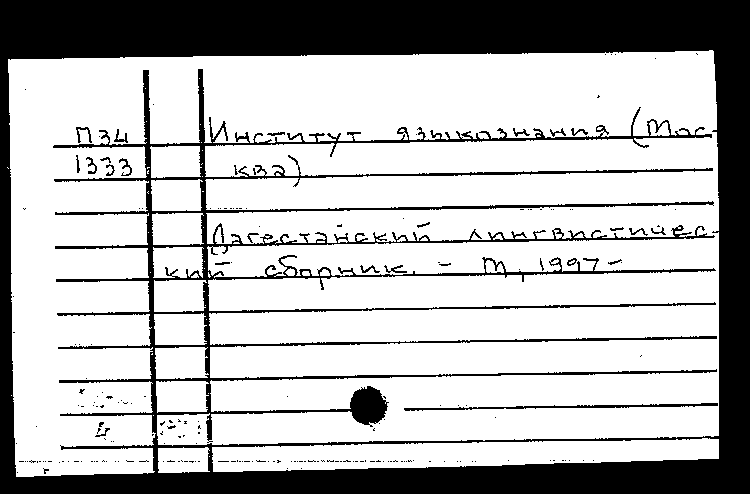 П34 Институт языкознания (Мос-
1333 ква)
Дагестанский лингвистичес-
кий сборник. - М, 1997-
4